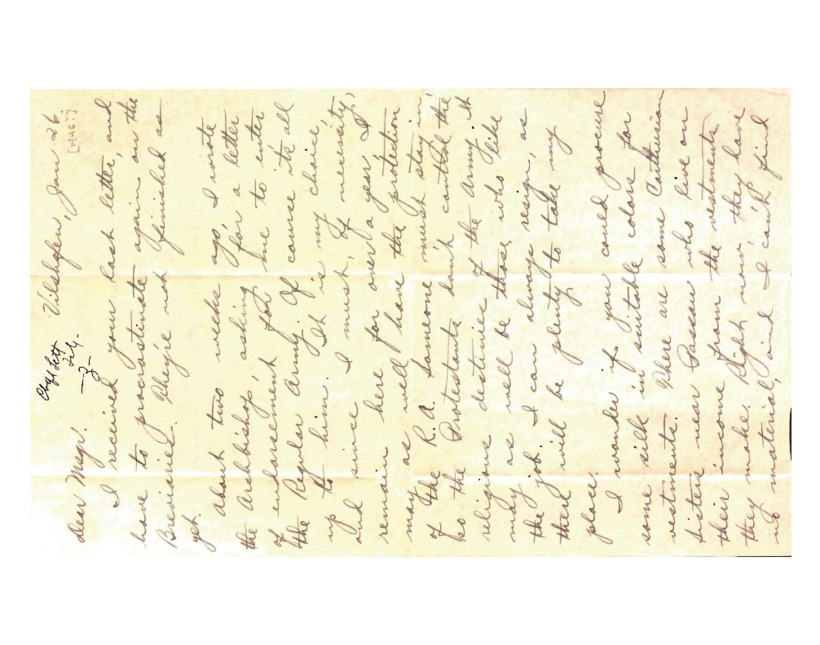 Vilshofen, Jan 26
[1946?]
Chap Lett
File -
-3-
Dear Msgr.
I received your last letter, and
have to procrastinate again on the
Breviaries. They're not finished as
yet.
About two weeks ago, I wrote
the Archbishop, asking for a letter
of endorsement for me to enter
the Regular Army. Of course it's all
up to him. It is my choice,
and since I must, of necessity,
remain here for over a year, I
may as well have the protection
of the R.A. Someone must stay in,
so the Protestants don't control the
religious destinies of the Army. It
may as well be those who like
the job. I can always resign, as
there will be plenty to take my
place.
I wonder if you could procure
some silk in suitable colors for
vestments. There are some
Sisters near Passau who live on
their income from the vestments
they make. Right now, they have
no material, and I can't find